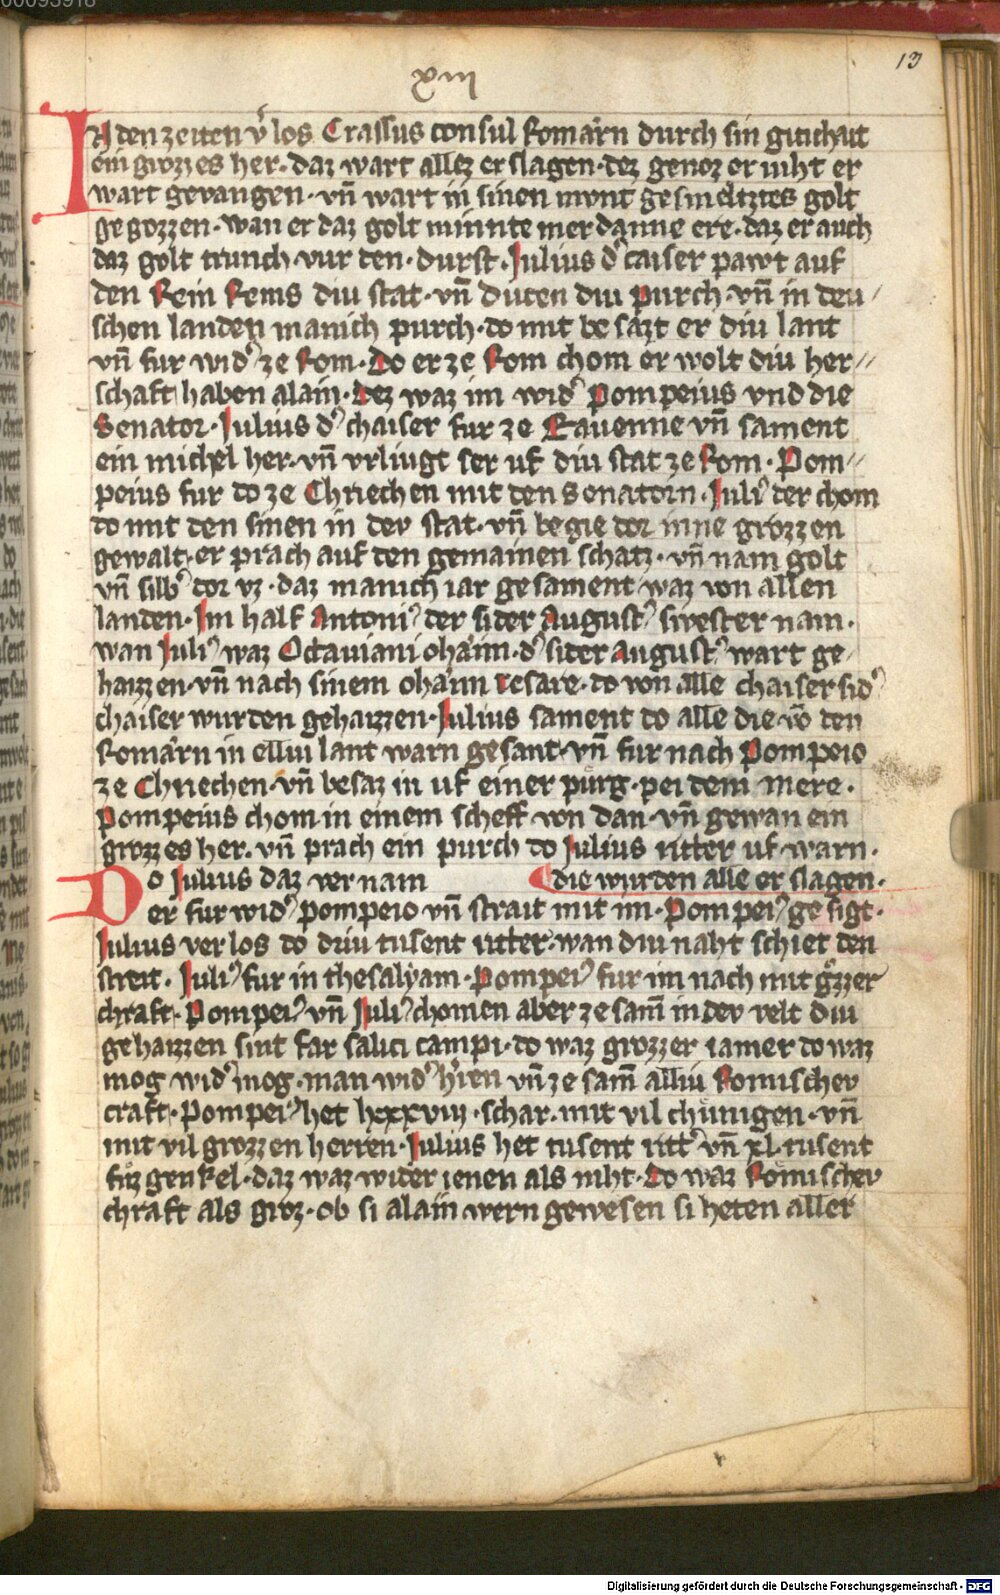 00093918
13
xiii
IN den zeiten v̓los Crassus consul Romârn durch sin gitichait
ein grozzes her. daz wart allez erslagen. dez genoz er niht er
wart gevangen. vn̄ wart in sinen mvnt gesmeltztes golt
gegozzen. wan er daz golt minnte mer danne ere. daz er auch
daz golt trunch vur den. durst. Julius d̓ caiser pawt auf
den Rein Rems diu stat. vn̄ Duten diu purch. vn̄ in deu/
schen landen manich purch. do mit besazt er diu lant
vn̄ fur wid̓ ze Rom. Do er ze Rom chom er wolt diu her//
schaft haben alain. dez waz im wid̓ Pompeius vnd die
Senator. Julius d̓ chaiser fur ze Rauenne vn̄ sament
ein michel her. vn̄ vrliugt ser uf diu stat ze Rom. Pom//
peius fur do ze Chriechen mit den Senatorn. Juli᾿ der chom
do mit den sinen in der stat. vn̄ begie dor inne grozzen
gewalt. er prach auf den gemainen schatz. vn̄ nam golt
vn̄ silb̓ dor vz. daz manich iar gesament waz von allen
landen. Im half Antoni᾿ der sider August᾿ swester nam.
wan Juli᾿ waz Octauiani ohâim. d̓ sider August᾿ wart ge/
haizzen. vn̄ nach sinem ohâim cesare. do von alle chaiser sid̓
chaiser wurden gehaizzen. Julius sament do alle die vō den
Romârn in elliu lant warn gesant. vn̄ fur nach Pompeio
ze Chriechen. vn̄ besaz in uf einer purg. pei dem mere.
Pompeius chom in einem scheff von dan. vn̄ gewan ein
grozzes her. vn̄ prach ein purch do Julius ritter uf warn.
Do Julius daz vernam die wurden alle erslagen.
er fur wid̓ pompeio vn̄ strait mit im. Pompei᾿ gesigt.
Julius verlos do driu tusent ritter. wan diu naht schiet den
streit. Juli᾿ fur in thesalyam. Pompei᾿ fur im nach mit grŏzzer
chraft. Pompei᾿ vn̄ Juli᾿ chomen aber zesam̄ in der velt diu
gehaizzen sint farsalici campi. do waz grozzer iamer do waz
mog wid̓ mog. man wid̓ h̓ren vn̄ ze sam̄ alliu Romischev
craft. Pompei᾿ het lxxxviii. schar. mit vil chůnigen. vn̄
mit vil grozzen herren. Julius het tusent ritt̓ vn̄ xl. tusent
fuzgenkel. daz waz wider ienen als niht. Do waz Romischev
chraft als groz. ob si alain wern gewesen si heten aller
Digitalisierung gefördert durch die Deutsche Forschungsgemeinschaft - DFG